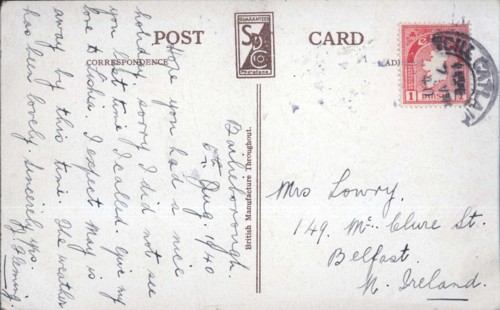 POST CARD
GUARANTEED
CORRESPONDENCE
AD
Bailieborough.
6th Aug. 1940
Hope you had a nice
holiday. sorry I did not see
you last time I called. Give my
love to I expect May is
away by this time. The weather
has been lovely. Sincerely yrs.
Fleming.
British Manufacture Throughout.
1
Mrs Lowry.
149. Mc. Clure St.
Belfast.
N. Ireland.